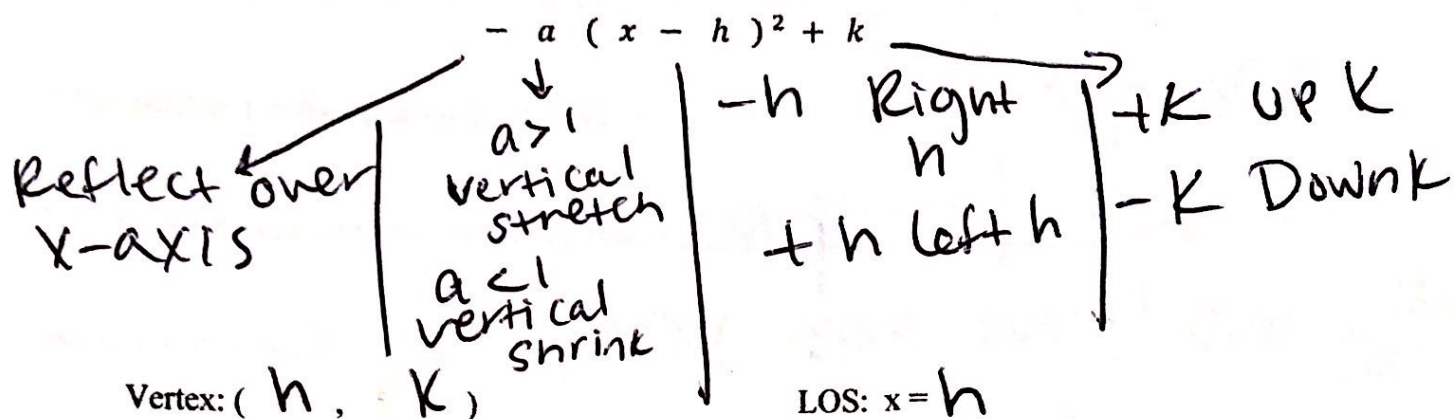 - a ( x - h )² + k
Reflect over
x-axis
a > 1
vertical
stretch
a < 1
vertical
shrink
-h Right
h
+h left h
+K UP K
-K Down K
Vertex: ( h , K )
LOS: x = h